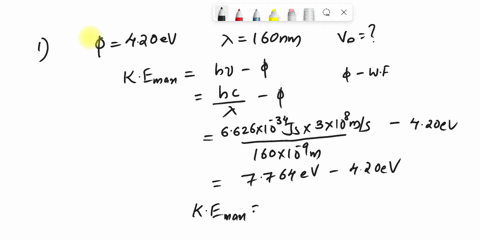 1) ϕ = 4.20eV λ = 160nm V₀ = ?
K.Emax = hν - ϕ ϕ - W.F
= hc/λ - ϕ
= 6.626×10⁻³⁴Js × 3×10⁸m/s / 160×10⁻⁹m - 4.20eV
= 7.764eV - 4.20eV
K.Emax =